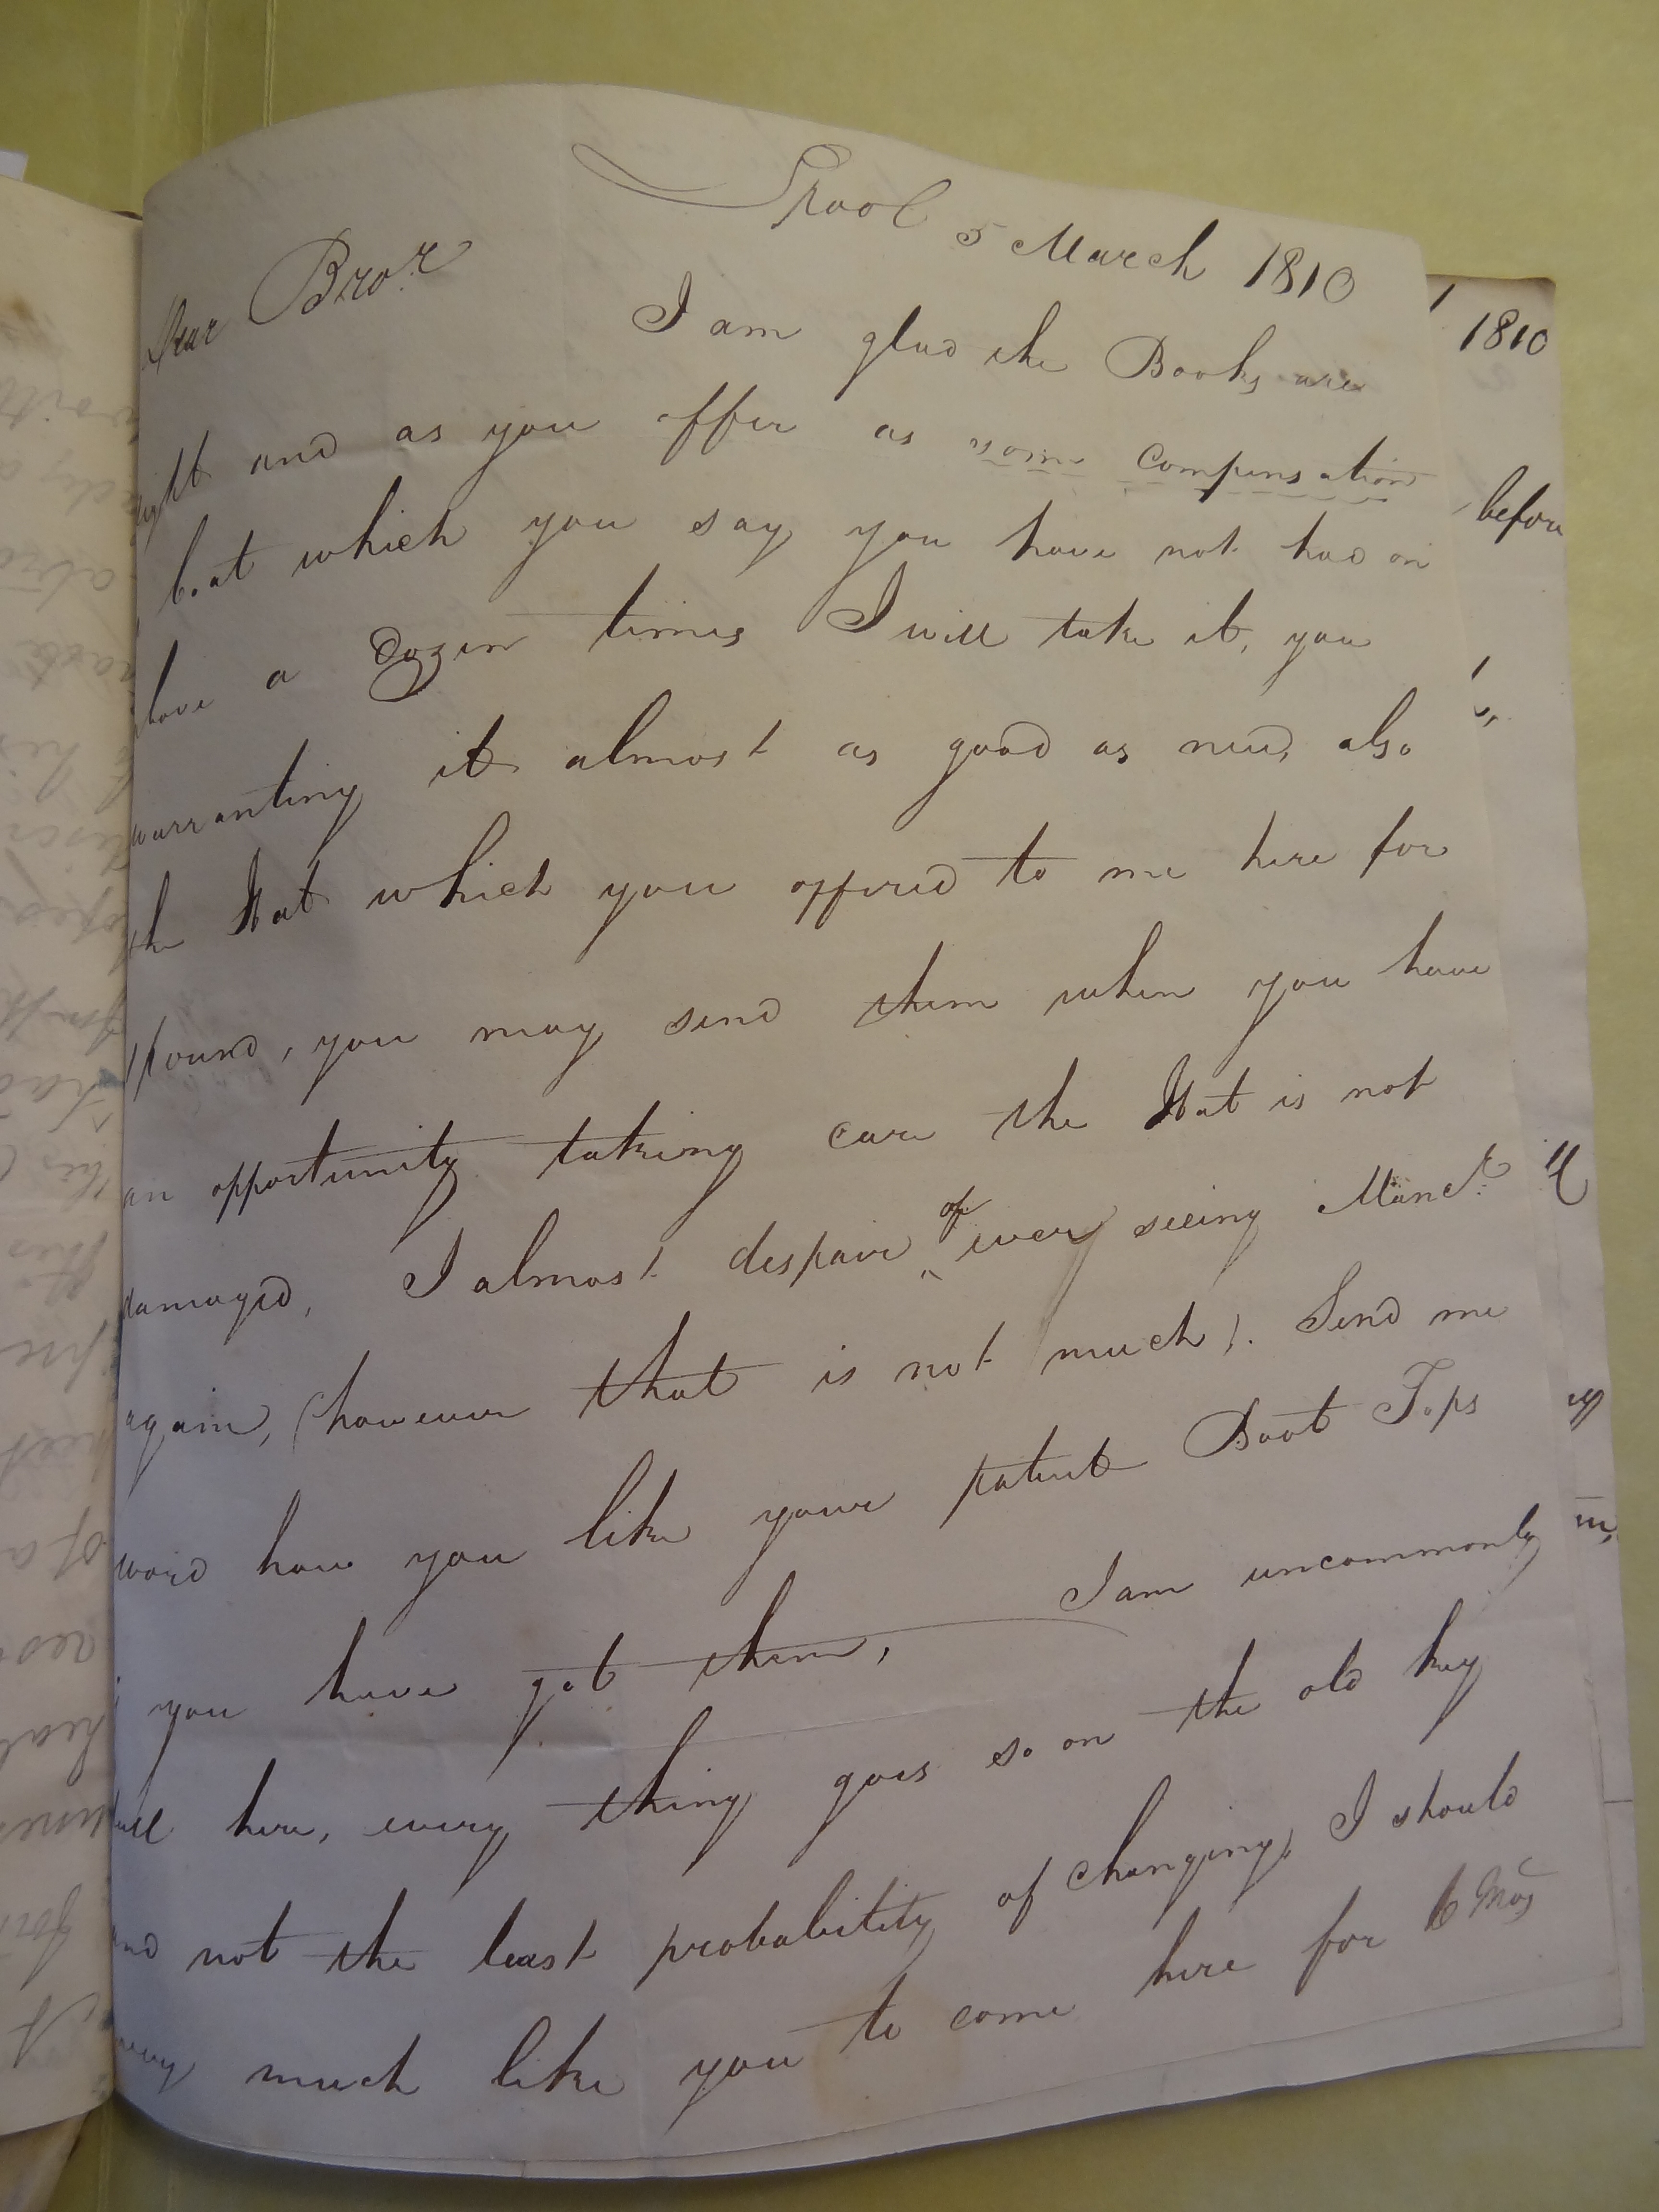 Lpool 5 March 1810
Dear Bror.
I am glad the Books are
right and as you offer as some compensation
Coat which you say you have not had on
above a Dozen times I will take it, you
warranting it almost as good as new, also
the Hat which you offered to me here for
Pound, you may send them when you have
an opportunity taking care the Hat is not
damaged, I almost despair of ever seeing Mancr.
again, (however that is not much). Send me
word how you like your patent Boot Tops
if you have got them, I am uncommonly
dull here, every thing goes so on the old key
and not the least probability of changing, I should
very much like you to come here for 6 Mos
1810
before